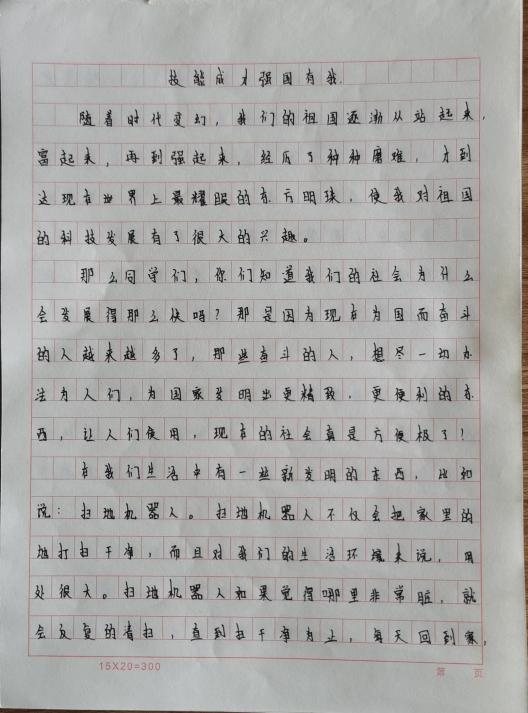 技能成才强国有我.
随着时代变幻，我们的祖国逐渐从站起来，
富起来，再到强起来，经历了种种磨难，才到
达现在世界上最耀眼的东方明珠，使我对祖国
的科技发展有了很大的兴趣。
那么同学们，你们知道我们的社会为什么
会发展得那么快吗？那是因为现在为国而奋斗
的人越来越多了，那些奋斗的人，想尽一切办
法为人们，为国家发明出更精致，更便利的东
西，让人们使用，现在的社会真是方便极了！
在我们生活中有一些新发明的东西，比如
说：扫地机器人。扫地机器人不仅会把家里的
地打扫干净，而且对我们的生活环境来说，用
处很大。扫地机器人如果觉得哪里非常脏，就
会反复的清扫，直到扫干净为止，每天回到家，
15X20=300
第 页